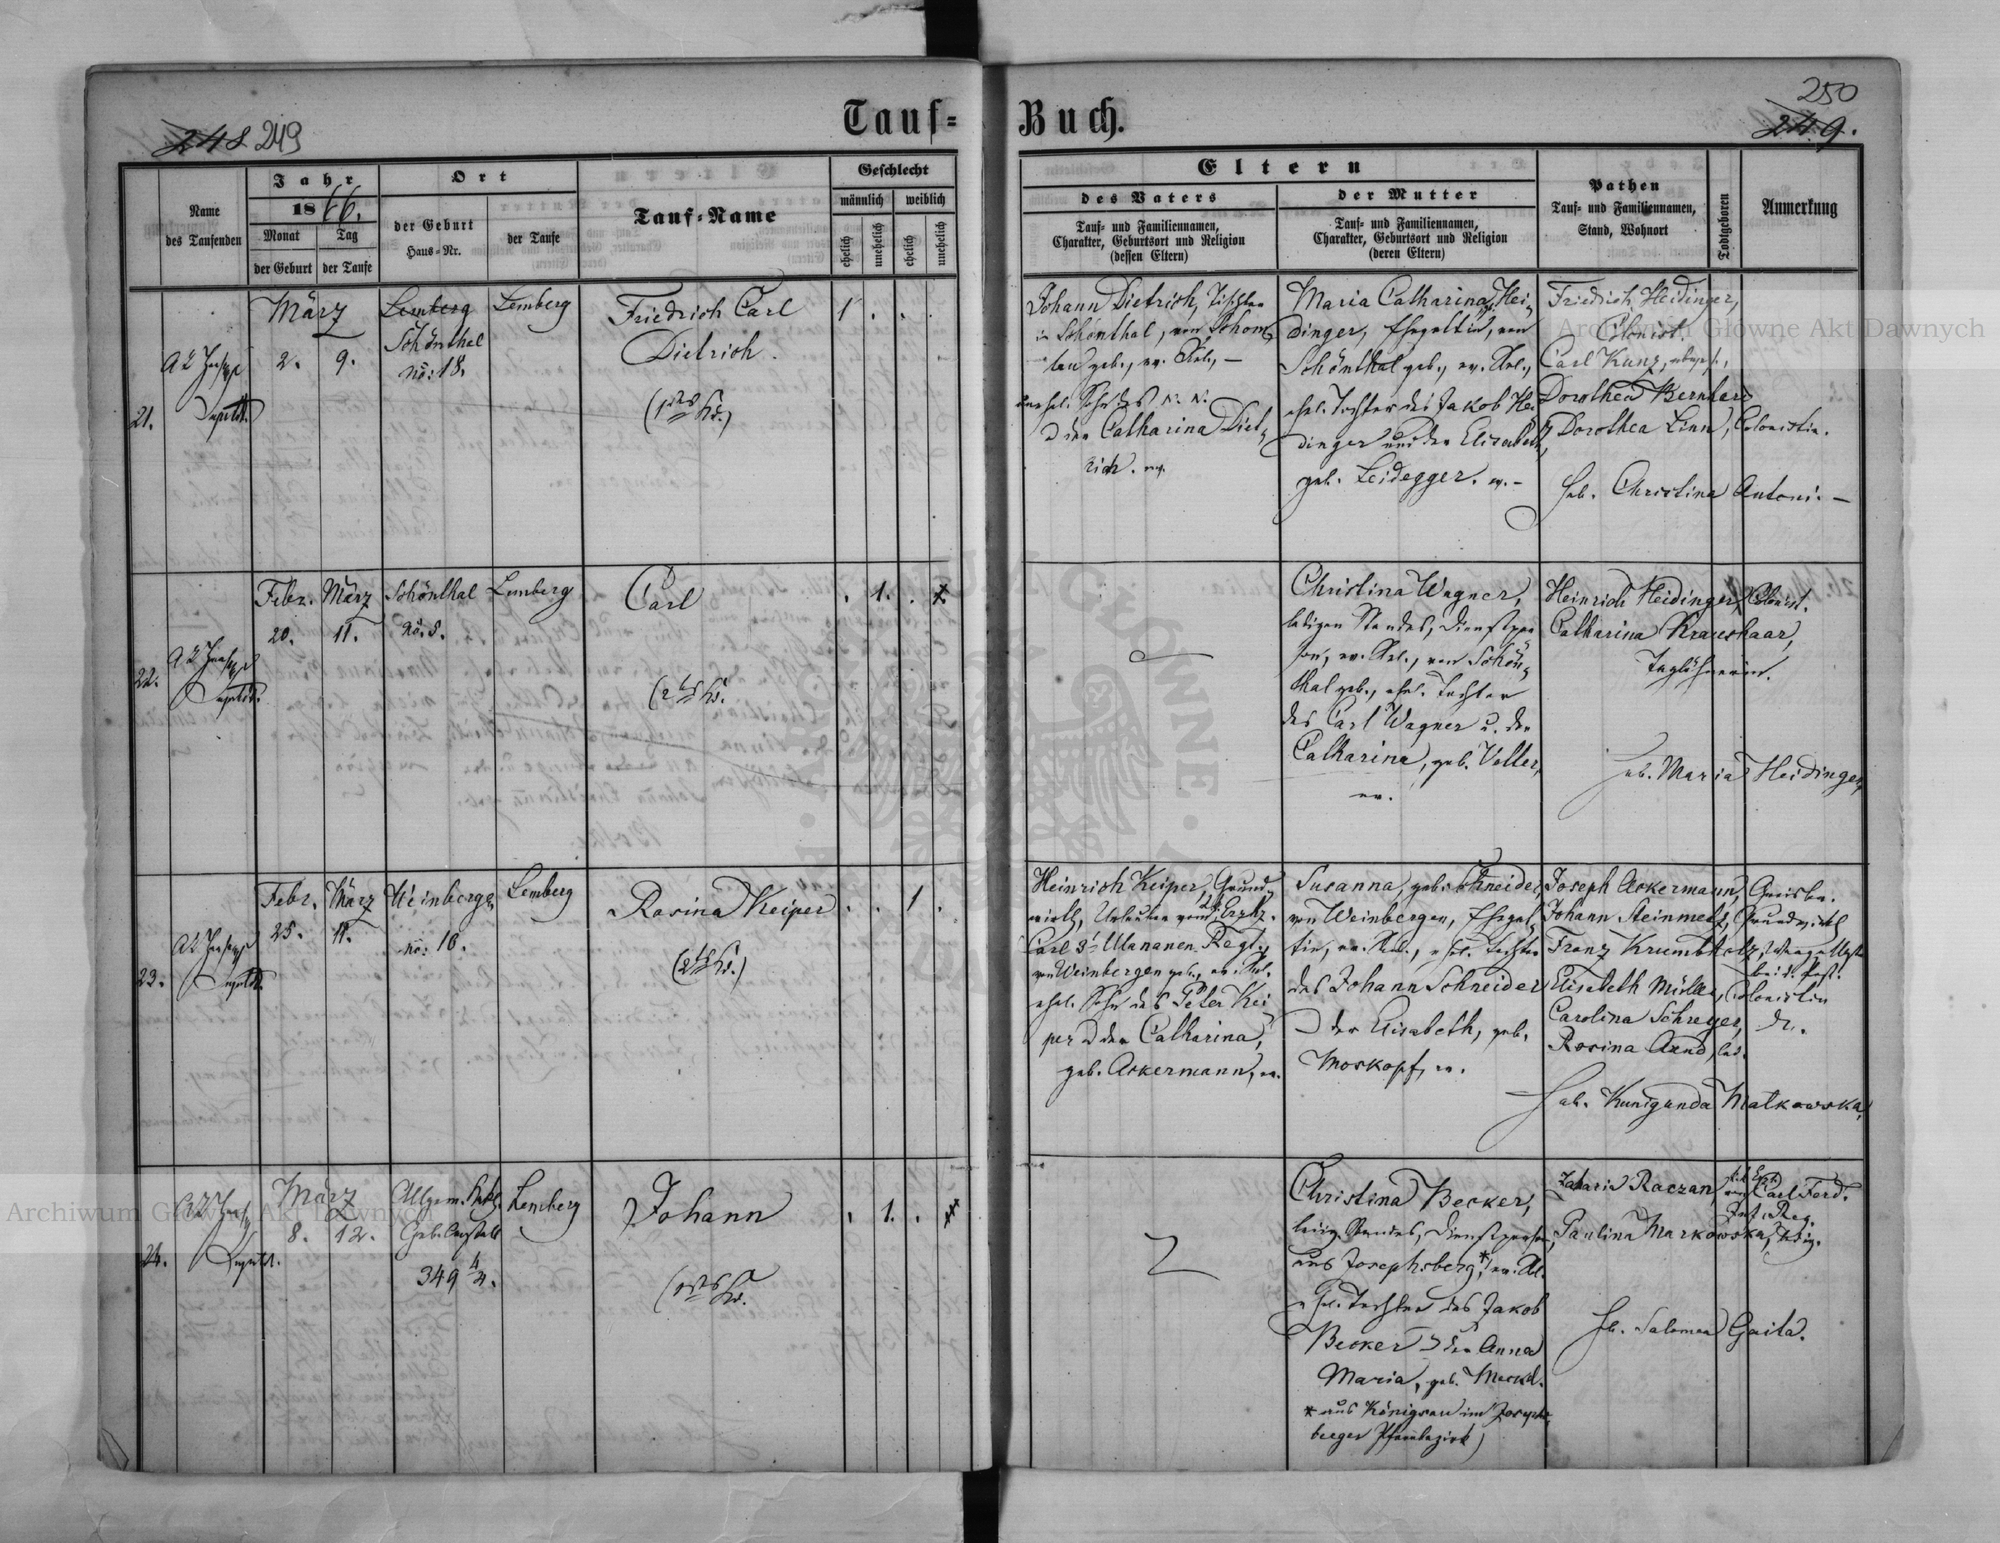 Tauf=
Buch.
248 249
250
249.
Name
des Taufenden
Jahr
1866.
Monat
Tag
der Geburt
der Taufe
Ort
der Geburt
Haus=Nr.
der Taufe
Tauf=Name
Geschlecht
männlich
weiblich
ehelich
unehelich
ehelich
unehelich
Eltern
des Vaters
Tauf= und Familiennamen,
Charakter, Geburtsort und Religion
(dessen Eltern)
der Mutter
Tauf= und Familiennamen,
Charakter, Geburtsort und Religion
(deren Eltern)
Pathen
Tauf= und Familiennamen,
Stand, Wohnort
Todtgeboren
Anmerkung
21.
März
2. 9.
Lemberg
Schönthal
No: 18.
Lemberg
Friedrich Carl
Dietrich.
1
Johann Dietrich, Tischler
in Schönthal, von
geb., ev.
unehel. Sohn des N. N.
der Catharina Diet=
rich. ev.
Maria Catharina Hei=
dinger, Ehegattin, von
Schönthal geb., ev.
ehel. Tochter des Jakob Hei=
dinger und der Elisabeth,
geb. Leidegger. ev. –
Friedrich Heidinger,
Colonist.
Carl Kunz,
Dorothea Bernhard
Dorothea Linn, Colonistin.
Heb. Christina Antoni. –
22.
Febr. März
20. 11.
Schönthal
No. 8.
Lemberg
Carl
1.
x
Christina Wagner,
ledigen Standes, Dienstper=
son, ev. von Schön=
thal geb., ehel. Tochter
des Carl Wagner u. der
Catharina, geb. Veller,
ev.
Heinrich Heidinger, Colonist.
Catharina Kraushaar,
Taglöhnerin.
Heb. Maria Heidinger,
23.
Febr. März
25. 11.
Weinbergen
No: 10.
Lemberg
Rosina Keiper
1.
Heinrich Keiper, Grund=
wirth, Urlauber vom Erzh.
Carl 3. Ulananen Regt.,
von Weinbergen geb., ev.
ehel. Sohn des Peter Kei=
per der Catharina,
geb. Ackermann, ev.
Susanna, geb. Schneider,
von Weinbergen, Ehegat=
tin, ev. ehel. Tochter
des Johann Schneider
der Elisabeth, geb.
Moskopf, ev.
Joseph Ackermann,
Johann Steinmetz, Grundwirth
Franz Krumbholz,
Elisabeth Müller, Colonistin
Carolina Schreyer,
Rosina Arnd, led.
Heb. Kunigunda Malkowska,
24.
März
8. 12.
Allgem.
Geb. Anstalt
349 4/4.
Lemberg
Johann
1.
xx
Christina Becker,
ledig. Standes, Dienstperson,
aus Josephsberg,* ev.
ehel. Tochter des Jakob
Becker der Anna
Maria, geb. Merkel.
* aus Königsau im Josephs=
berger Pfarrbezirk)
Zaharie Raczan,
Carl Ferd.
Inf. Reg.
Paulina Markowska, ledig.
Heb. Salomea Gaita.
Archiwum Główne Akt Dawnych
Archiwum Główne Akt Dawnych